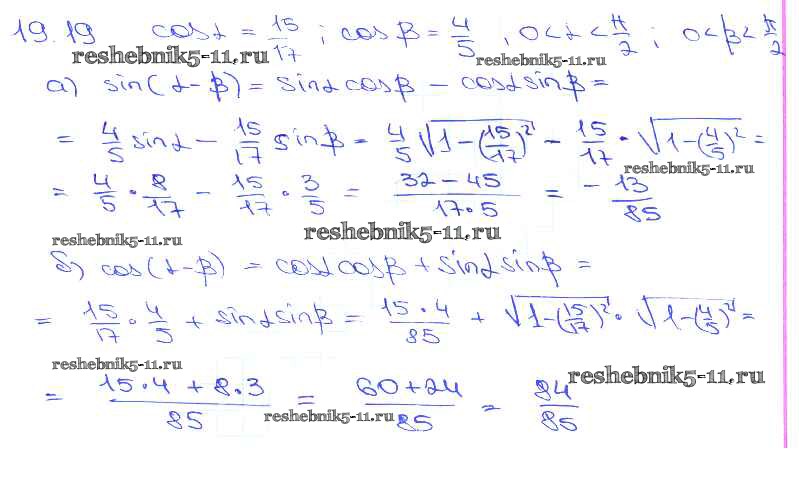 19.19 cosα = 15/17 ; cosβ = 4/5 , 0<α<π/2 ; 0<β<π/2
reshebnik5-11.ru reshebnik5-11.ru
а) sin(α-β) = sinα cosβ - cosα sinβ =
= 4/5 sinα - 15/17 sinβ = 4/5 √(1-(15/17)²) - 15/17 · √(1-(4/5)²) =
reshebnik5-11.ru
= 4/5 · 8/17 - 15/17 · 3/5 = (32-45)/(17·5) = -13/85
reshebnik5-11.ru reshebnik5-11.ru
б) cos(α-β) = cosα cosβ + sinα sinβ =
= 15/17 · 4/5 + sinα sinβ = 15·4/85 + √(1-(15/17)²) · √(1-(4/5)²) =
reshebnik5-11.ru
= (15·4 + 8·3)/85 = (60+24)/85 = 84/85
reshebnik5-11.ru reshebnik5-11.ru